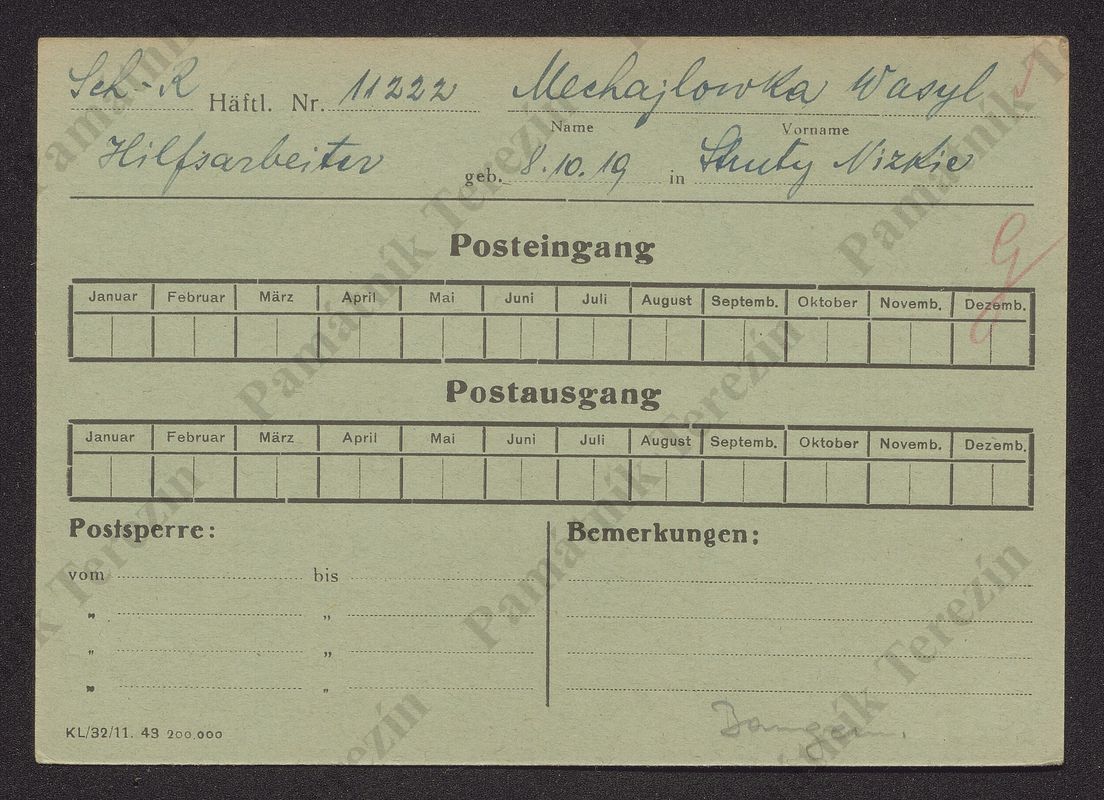 Sch-R Häftl. Nr. 11222 Mechajlowka Wasyl
Name Vorname
Hilfsarbeiter geb. 8.10.19 in Struty Nizkie
G
Posteingang
Januar Februar März April Mai Juni Juli August Septemb. Oktober Novemb. Dezemb.
Postausgang
Januar Februar März April Mai Juni Juli August Septemb. Oktober Novemb. Dezemb.
Postsperre: Bemerkungen:
vom bis
„ „
„ „
„ „
KL/32/11. 43 200,000
Památník Terezín